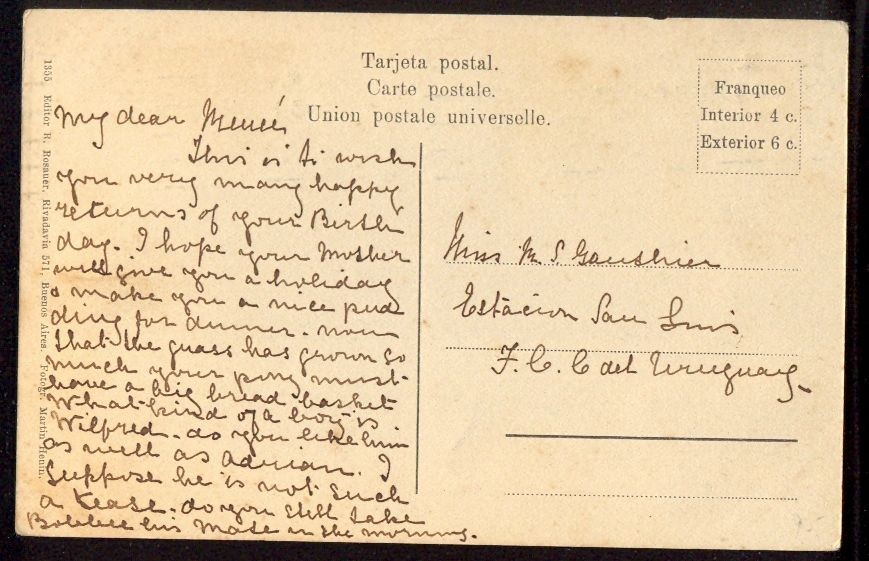 Tarjeta postal.
Carte postale.
Union postale universelle.
Franqueo
Interior 4 c.
Exterior 6 c.
1355 Editor R. Rosauer, Rivadavia 571, Buenos Aires. Fotogr. Martin Henin.
My dear
This is to wish
you very many happy
returns of your Birth
day. I hope your Mother
will give you a holiday
& make you a nice pud
ding for dinner. now
that the grass has grown so
much your pony must
have a big bread basket
What kind of a boy is
Wilfred. do you like him
as well as Adrian. I
Suppose he is not such
a tease. do you still take
his Mate in the morning.
Miss M. S. Gauthier
Estacion San Luis
F. C. C del Uruguay